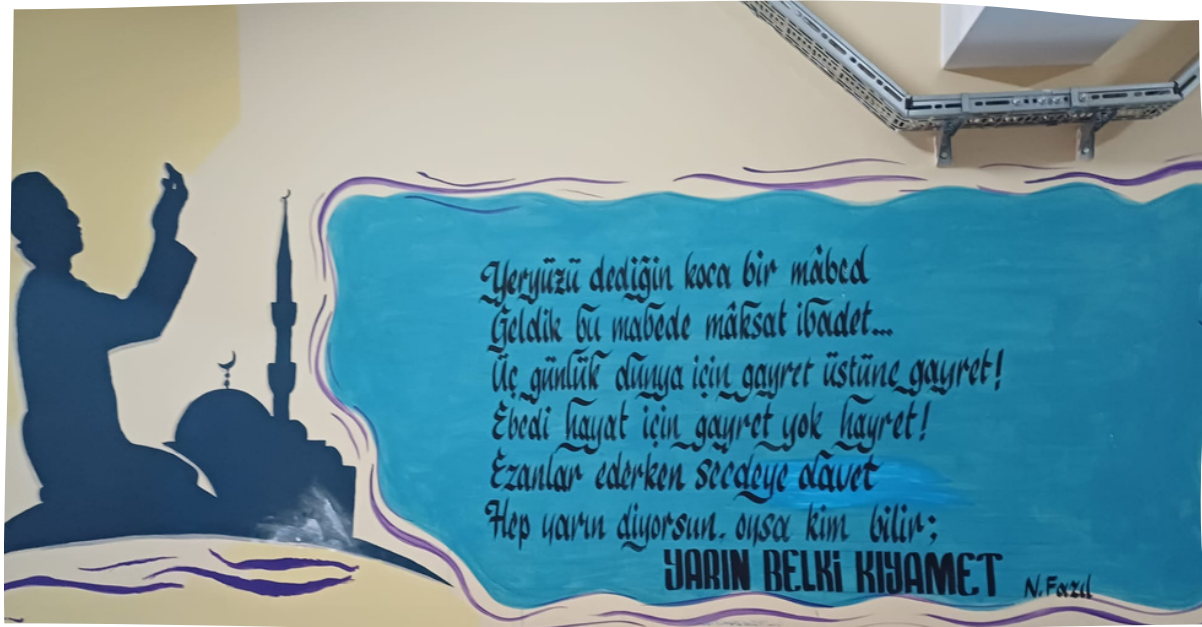 Yeryüzü dediğin koca bir mâbed
Geldik bu mabede mâksat ibadet...
Üç günlük dünya için gayret üstüne gayret!
Ebedi hayat için gayret yok hayret!
Ezanlar ederken secdeye dâvet
Hep yarın diyorsun. oysa kim bilir;
YARIN BELKİ KIYAMET
N. Fazıl